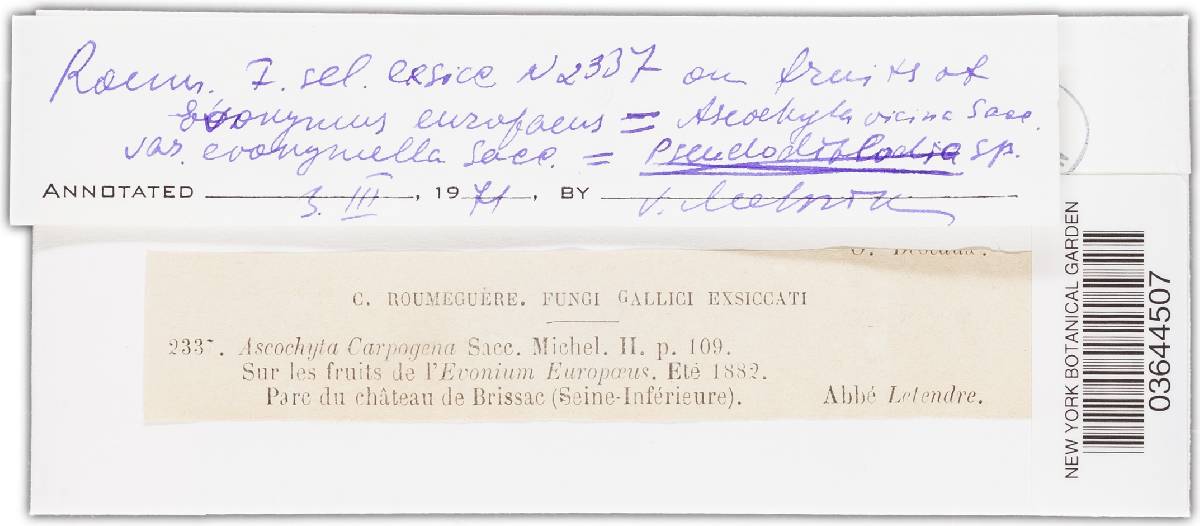 Roum. F. sel. exsicc N 2337 on fruits of
Evonymus europaeus = Ascochyta vicina Sacc.
var. evonymella Sacc. = Pseudodiplodia sp.
ANNOTATED 3. III, 1971, BY V. Melnik
C. ROUMEGUÈRE. FUNGI GALLICI EXSICCATI
2337. Ascochyta Carpogena Sacc. Michel. II. p. 109.
Sur les fruits de l'Evonium Europœus. Eté 1882.
Parc du château de Brissac (Seine-Inférieure). Abbé Letendre.
NEW YORK BOTANICAL GARDEN
03644507